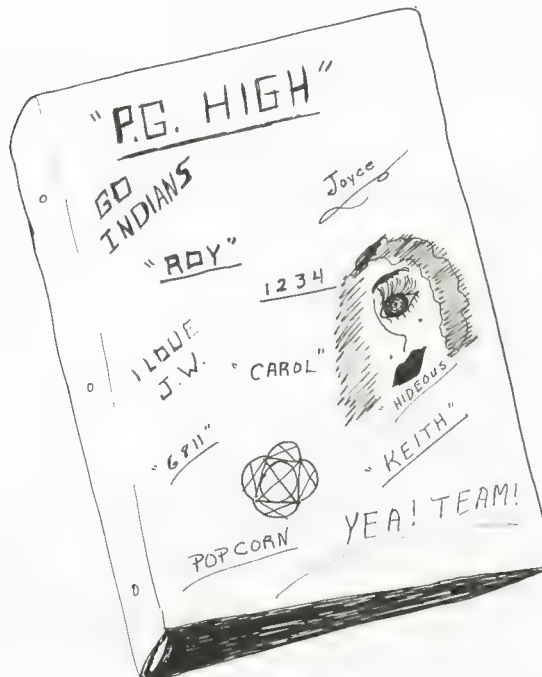 "P.G. HIGH"
GO
INDIANS
Joyce
"ROY"
1234
I LOVE
J.W.
"CAROL"
"HIDEOUS"
"6811"
"KEITH"
POPCORN
YEA! TEAM!